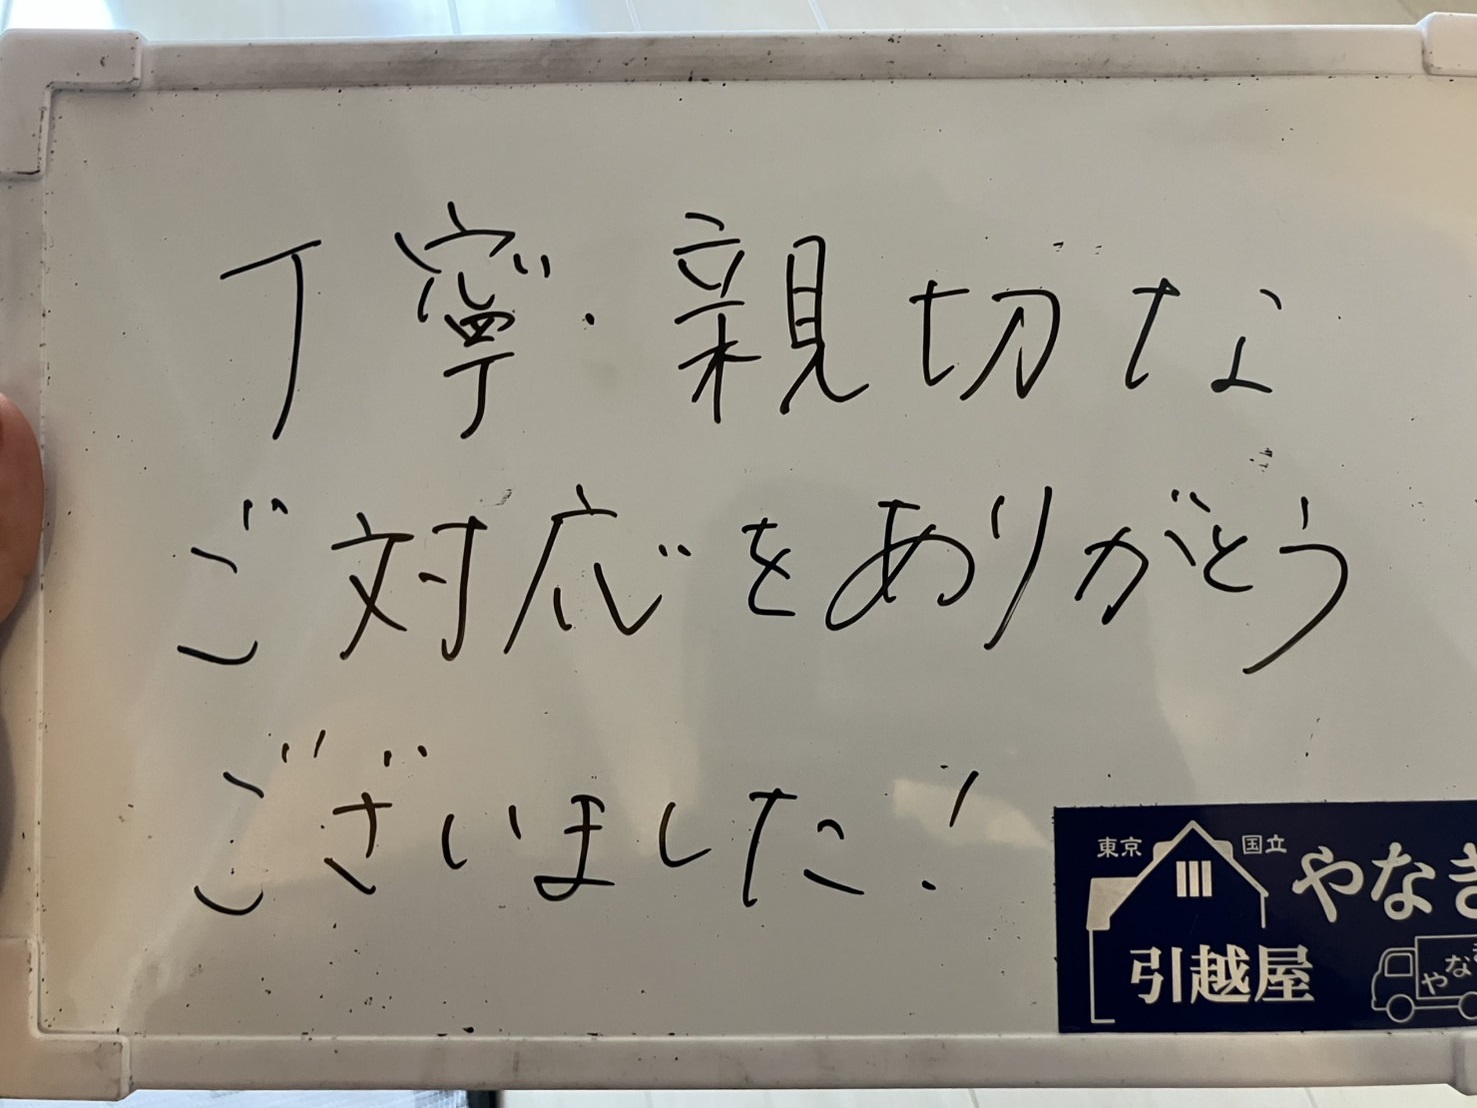 丁寧・親切な
ご対応をありがとう
ございました!
東京 国立
やなき
引越屋
やな